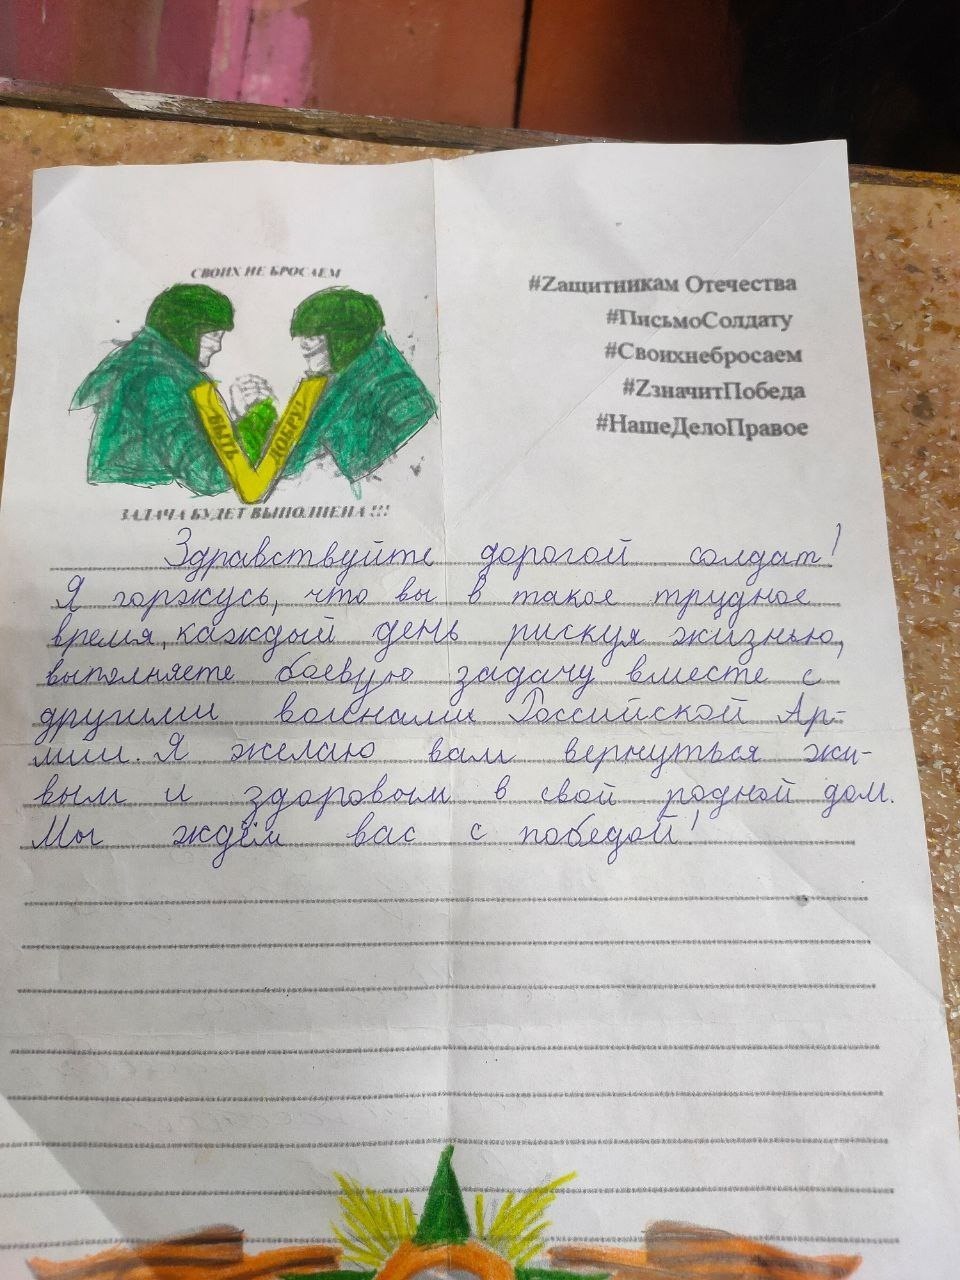 СВОИХ НЕ БРОСАЕМ
БЫТЬ ДОБРУ!
ЗАДАЧА БУДЕТ ВЫПОЛНЕНА !!!
#Zащитникам Отечества
#ПисьмоСолдату
#Своихнебросаем
#ZзначитПобеда
#НашеДелоПравое
Здравствуйте дорогой солдат!
Я горжусь, что вы в такое трудное
время, каждый день рискуя жизнью,
выполняете боевую задачу вместе с
другими воинами Российской Ар-
мии. Я желаю вам вернуться жи-
вым и здоровым в свой родной дом.
Мы ждём вас с победой!